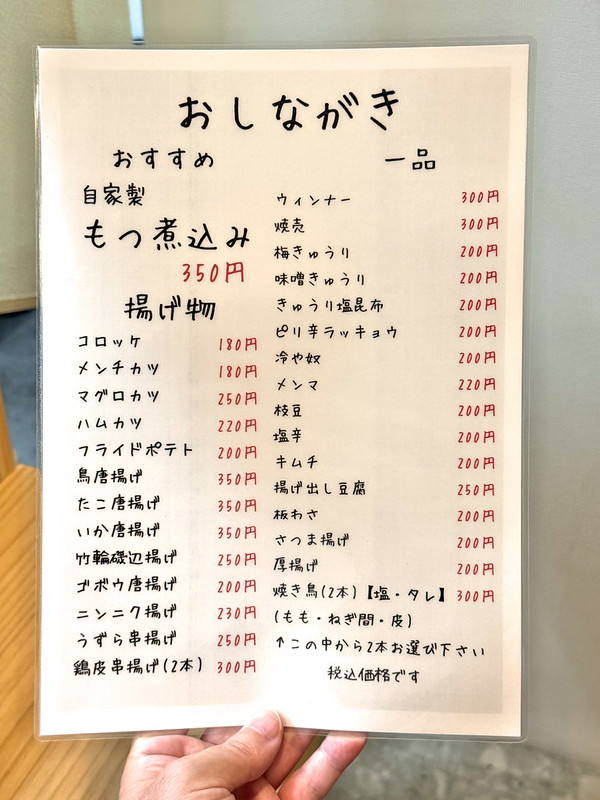 おしながき
おすすめ
自家製
もつ煮込み
350円
揚げ物
コロッケ 180円
メンチカツ 180円
マグロカツ 250円
ハムカツ 220円
フライドポテト 200円
鳥唐揚げ 350円
たこ唐揚げ 350円
いか唐揚げ 350円
竹輪磯辺揚げ 250円
ゴボウ唐揚げ 200円
ニンニク揚げ 230円
うずら串揚げ 250円
鶏皮串揚げ(2本) 300円
一品
ウィンナー 300円
焼売 300円
梅きゅうり 200円
味噌きゅうり 200円
きゅうり塩昆布 200円
ピリ辛ラッキョウ 200円
冷や奴 200円
メンマ 220円
枝豆 200円
塩辛 200円
キムチ 200円
揚げ出し豆腐 250円
板わさ 200円
さつま揚げ 200円
厚揚げ 200円
焼き鳥(2本)【塩・タレ】 300円
(もも・ねぎ間・皮)
↑この中から2本お選び下さい
税込価格です